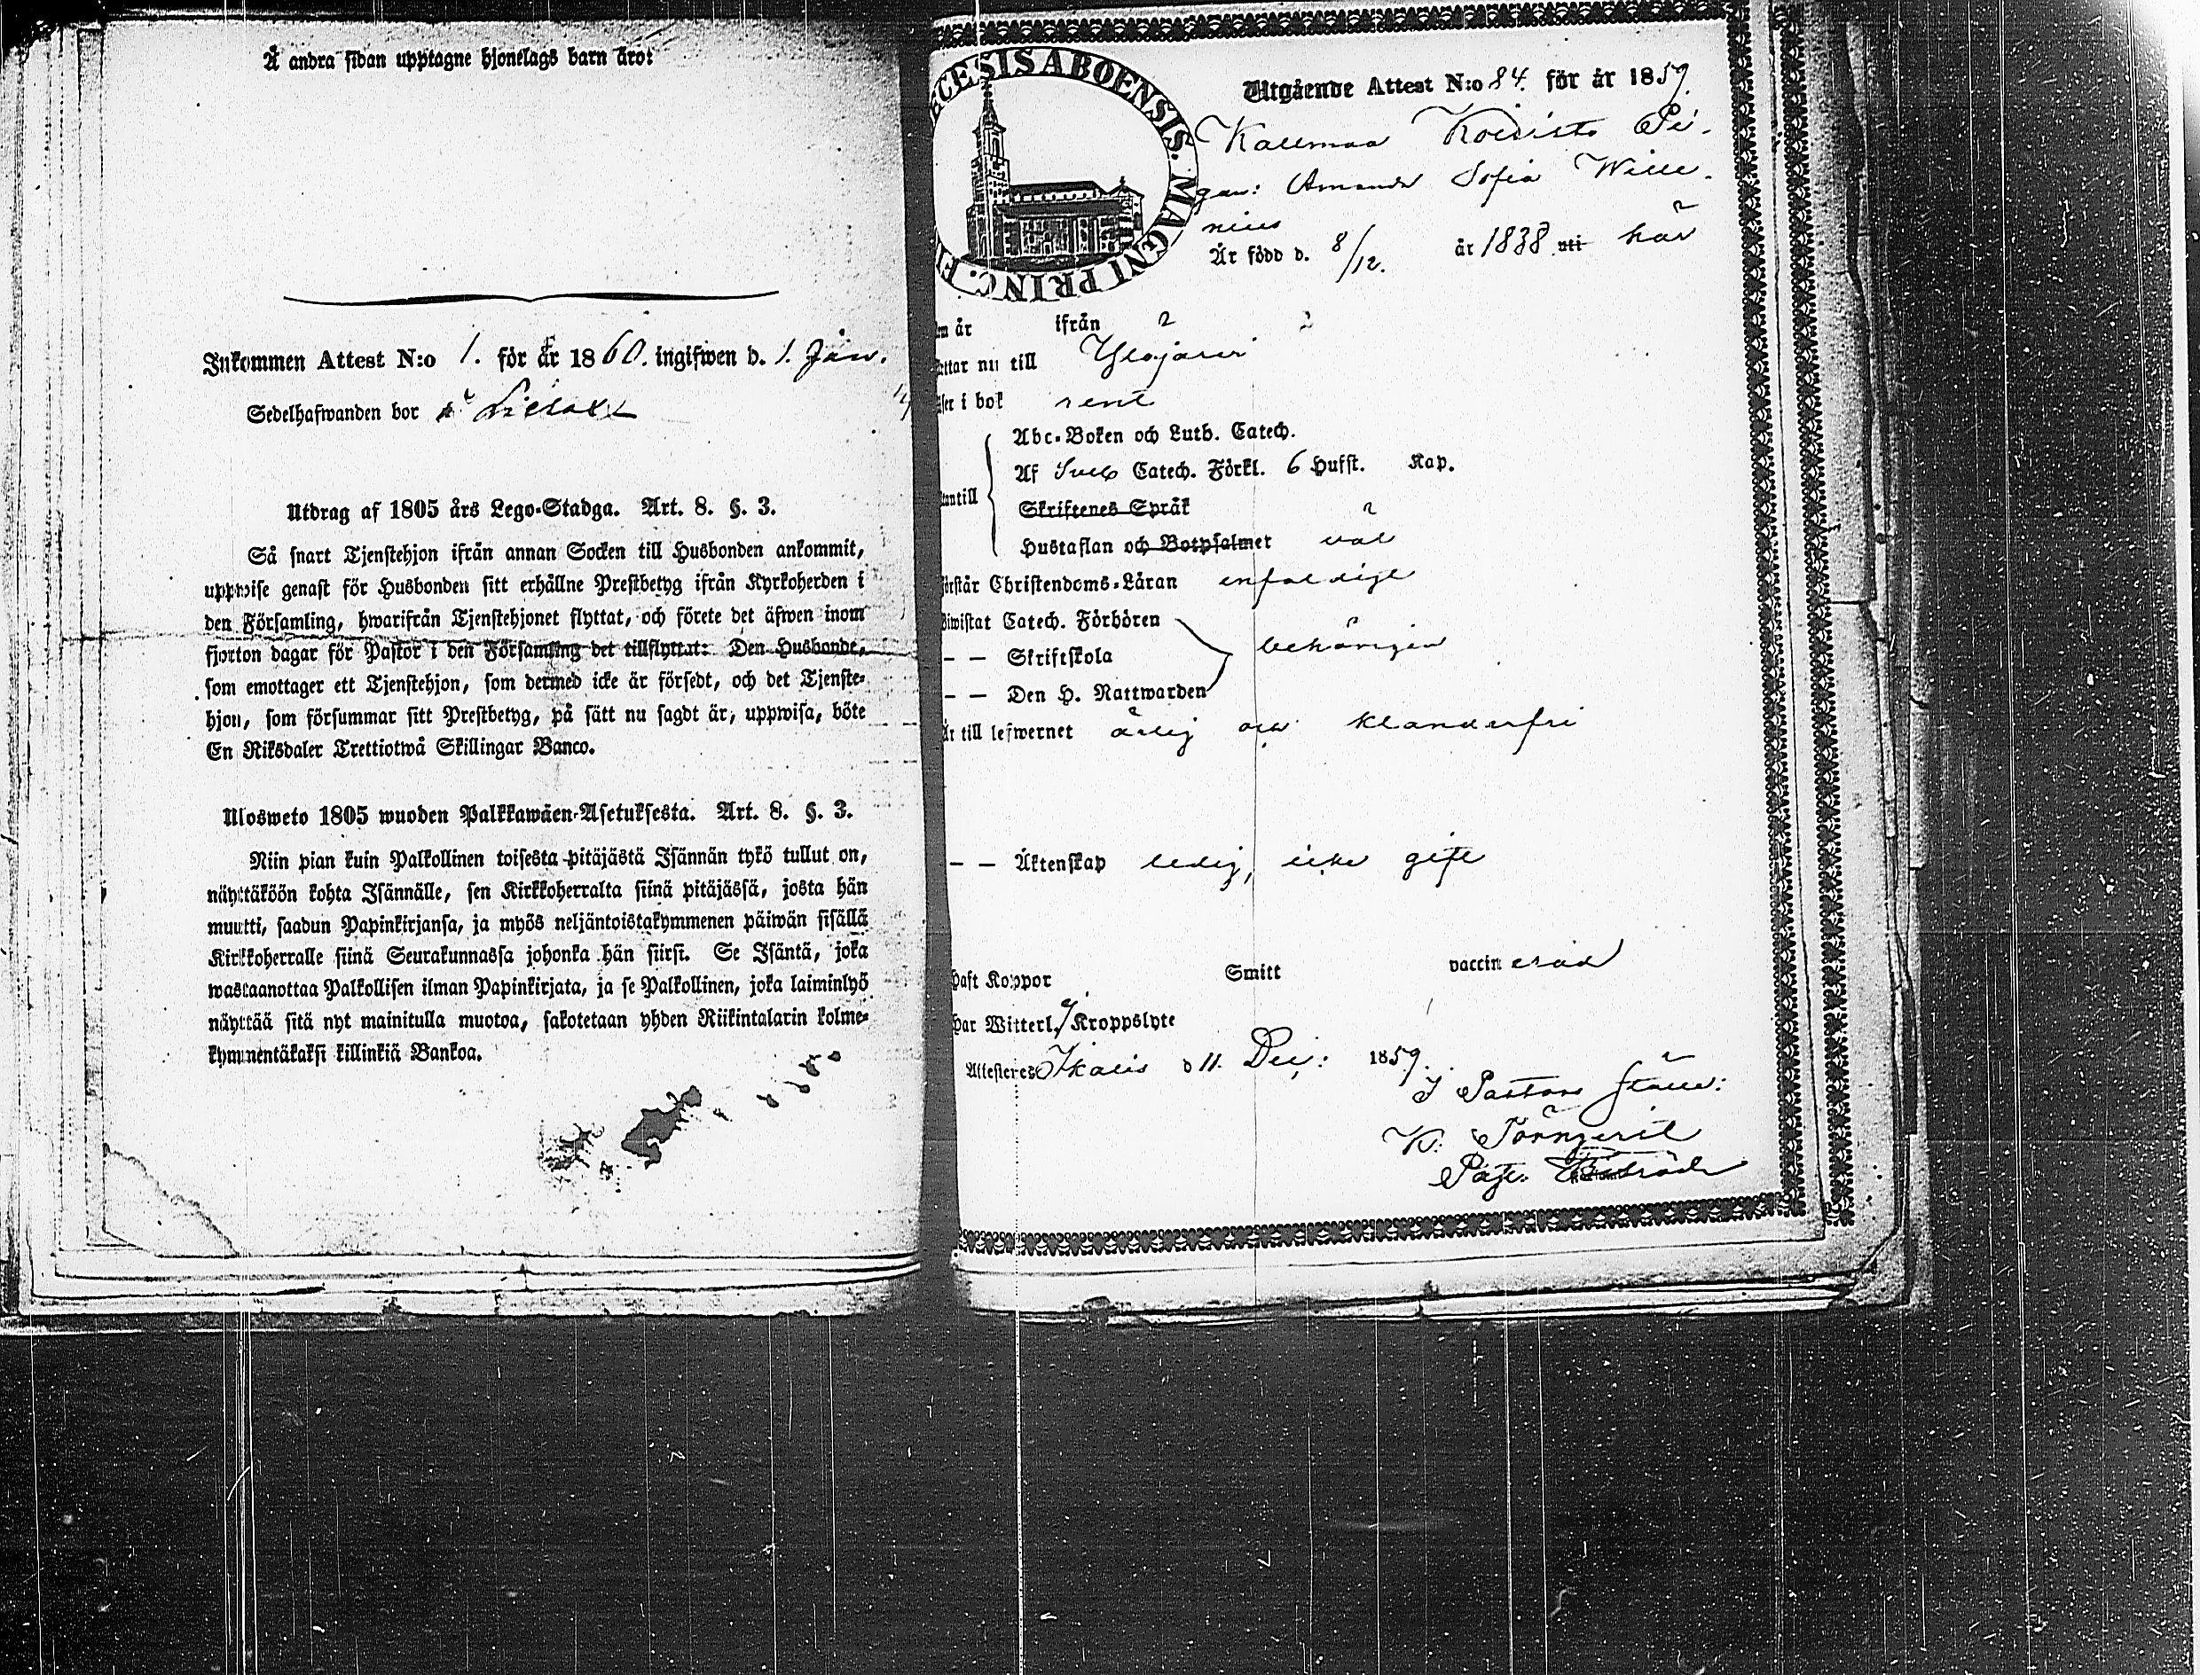 Å andra sidan upptagne hjonelags barn äro:
Inkommen Attest N:o 1. för år 1860. ingifwen d. 1. Jan.
Sedelhafwanden bor
Utdrag af 1805 års Lego-Stadga. Art. 8. §. 3.
Så snart Tjenstehjon ifrån annan Socken till Husbonden ankommit,
uppwise genast för Husbonden sitt erhållne Prestbetyg ifrån Kyrkoherden i
den Församling, hwarifrån Tjenstehjonet flyttat, och förete det äfwen inom
fjorton dagar för Pastor i den Församling det tillflyttat: Den Husbonde,
som emottager ett Tjenstehjon, som dermed icke är försedt, och det Tjenste-
hjon, som försummar sitt Prestbetyg, på sätt nu sagdt är, uppwisa, böte
En Riksdaler Trettiotwå Skillingar Banco.
Ulosweto 1805 wuoden Palkkawäen-Asetuksesta. Art. 8. §. 3.
Niin pian kuin Palkollinen toisesta pitäjästä Isännän tykö tullut on,
näyttäköön kohta Isännälle, sen Kirkkoherralta siinä pitäjässä, josta hän
muutti, saadun Papinkirjansa, ja myös neljäntoistakymmenen päiwän sisällä
Kirkkoherralle siinä Seurakunnassa johonka hän siirsi. Se Isäntä, joka
wastaanottaa Palkollisen ilman Papinkirjata, ja se Palkollinen, joka laiminlyö
näyttää sitä nyt mainitulla muotoa, sakotetaan yhden Riikintalarin kolme-
kymmentäkaksi killinkiä Bankoa.
ECESIS ABOENSIS. MAGNI PRINC. FI
Utgående Attest N:o 84. för år 1859.
Kallmaa Koivisto Pi-
gan: Amanda Sofia Wille-
nius
Är född d. 8/12. år 1838 uti här
år ifrån
ttar nu till Ylöjärvi
ser i bok rent
Abc-Boken och Luth. Catech.
Af Sveb Catech. Förkl. 6 Hufst. Kap.
ntill
Skriftenes Språk
Hustaflan och Botpsalmer väl
örstår Christendoms-Läran enfaldigt
iwistat Catech. Förhören
– – Skriftskola behörigen
– – Den H. Nattwarden
Är till lefwernet ärlig och klanderfri
– – Äktenskap ledig, icke gift
Haft Koppor Smitt vaccinerad
Har Witterl. Kroppslyte
Attesteres Ikalis d 11. Dec: 1859.
I Pastors ställe:
K: Törnqvist